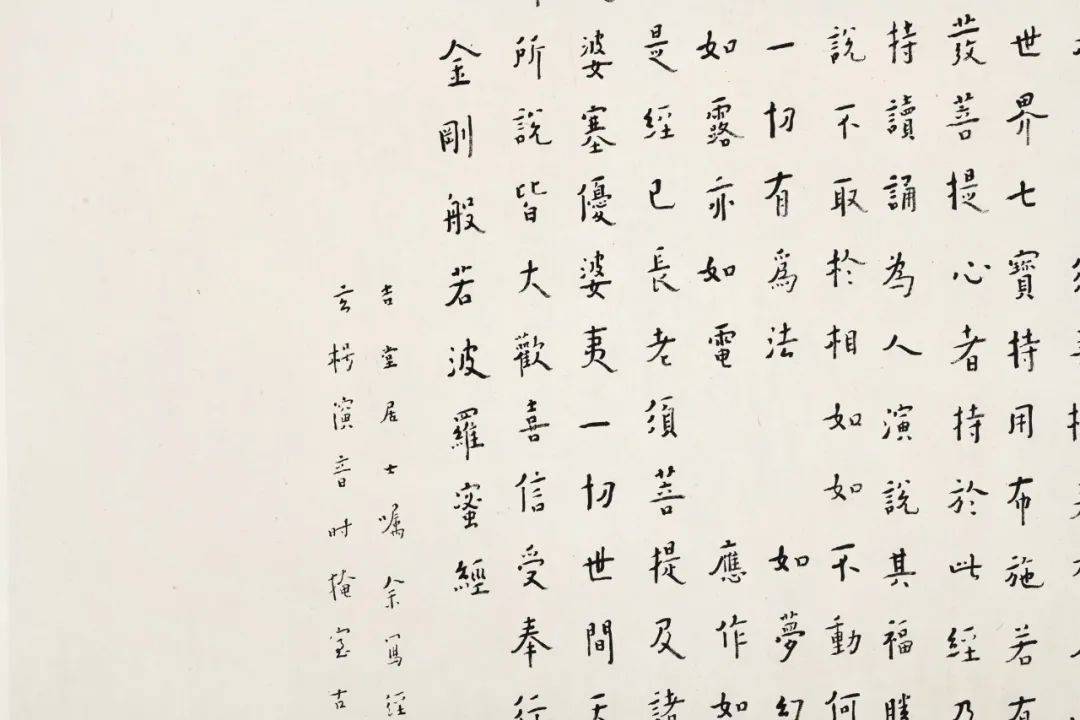 世界七寶持用布施若有
發菩提心者持於此經乃
持讀誦為人演說其福勝
說不取於相如如不動何
一切有爲法 如夢幻
如露亦如電 應作如
是經已長老須菩提及諸
婆塞優婆夷一切世間天
所說皆大歡喜信受奉行
金剛般若波羅蜜經
吉堂居士嘱余寫經
演音时掩室古